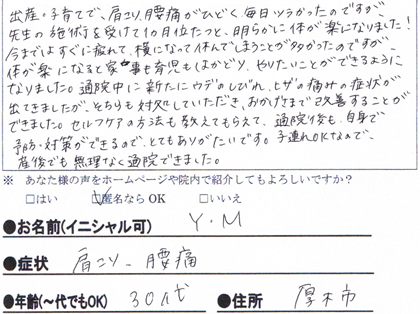 出産・子育てで、肩こり、腰痛がひどく毎日ツラかったのですが、
先生の施術を受けて1ヶ月位たつと、明らかに体が楽になりました!
今まではすぐに疲れて、横になって休んでしまうことが多かったのですが、
体が楽になると家事も育児もはかどり、やりたいことができるように
なりました。通院中に新たにウデのしびれ、ヒザの痛みの症状が
出てきましたが、どちらも対処していただき、おかげさまで改善することが
できました。セルフケアの方法も教えてもらえて、通院後も、自身で
予防・対策ができるので、とてもありがたいです。子連れOKなので、
産後でも無理なく通院できました。
※ あなた様の声をホームページや院内で紹介してもよろしいですか?
□はい ☑匿名なら OK □いいえ
●お名前(イニシャル可) Y・M
●症状 肩こり、腰痛
●年齢(~代でもOK) 30代 ●住所 厚木市